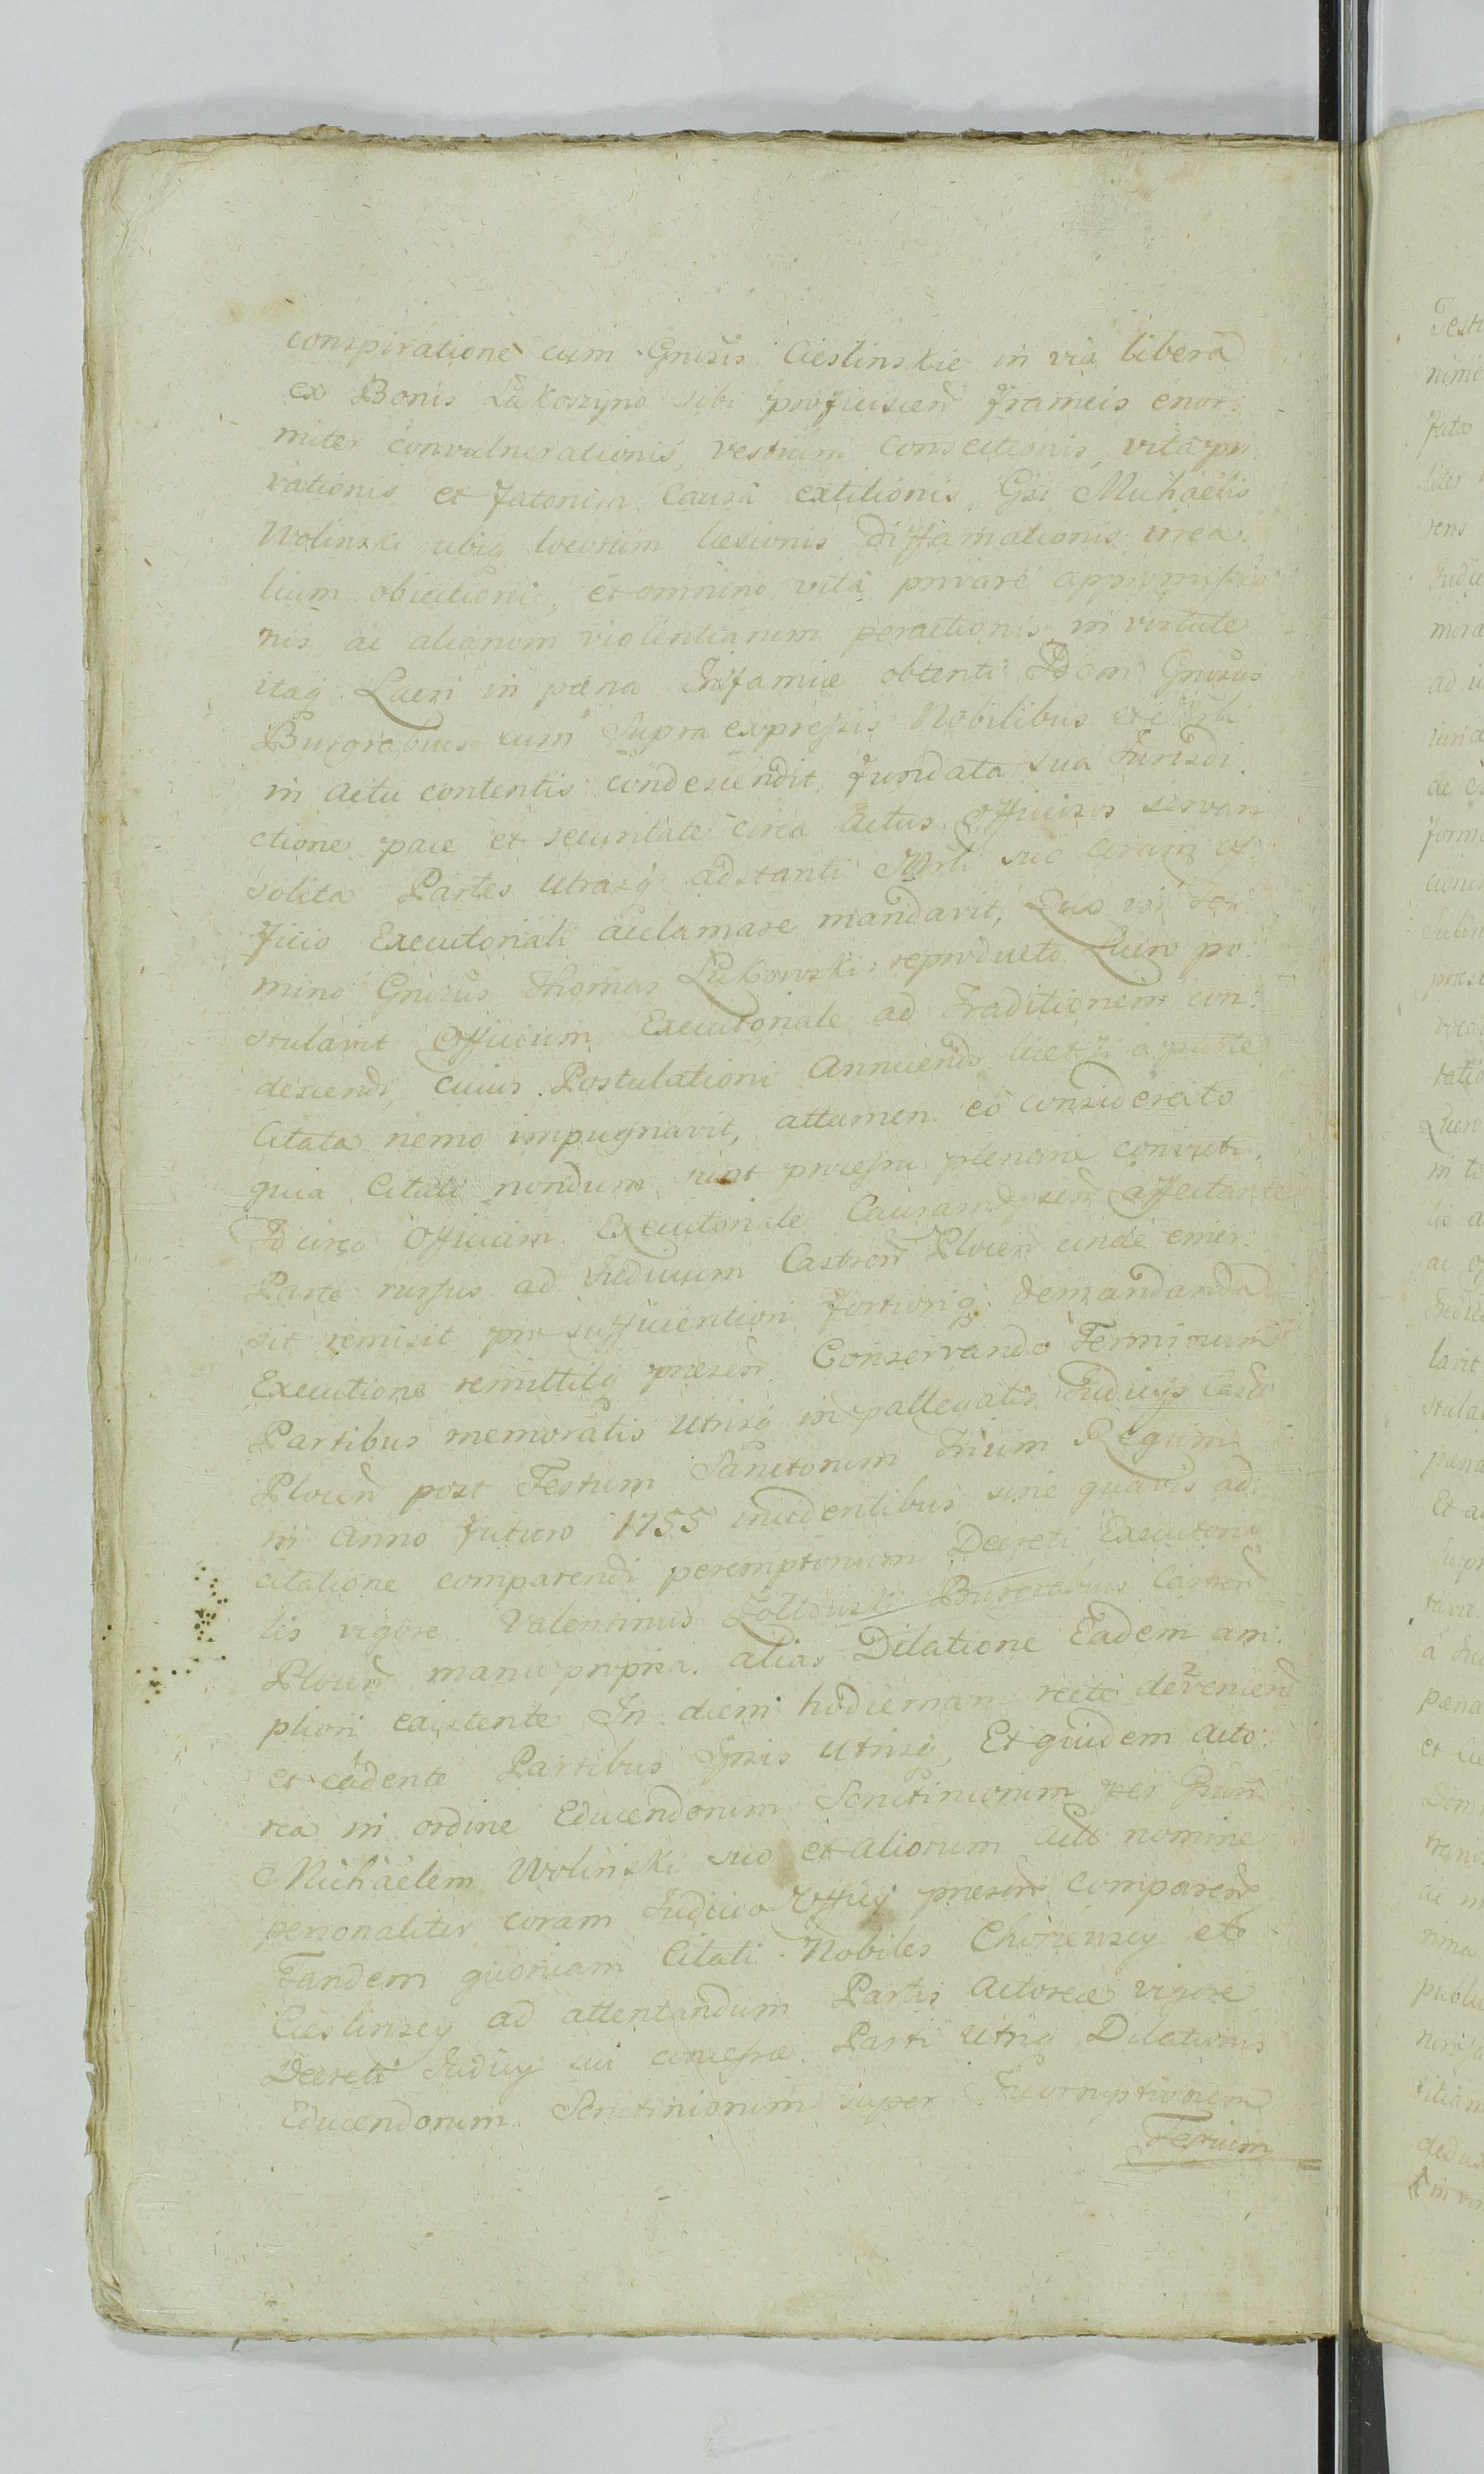 conspiratione cum Gnosis Cieslinskie in via libera
ex Bonis Lukoszyno sibi proficiscen frameis enor:
miter convulnerationis, vestium consectionis, vita pri
vationis et fatorum causa extitionis Gsi Michaelis
Wolinski ubiq locorum læsionis diffamationis irrea
lium obiectionis, et omnino vita privare appromissio
nis ac aliarum violentiarum peractionis in virtute
itaq Lucri in pœna Infamiæ obtenti Idem Gnosus
Burgrabius cum Supra expressis Nobilibus et Mrli
in actu contentis condescendit, fundata sua Jurisdi
ctione pace et securitate circa actus officiosos servari
solita Partes utrasq adstanti Mrli suo coram of:
ficio Executoriali acclamare mandavit, Quo in Ter
mino Gnosus Thomas Lukowski reproducto Lucro po:
stulavit Officium Executoriale ad Traditionem con:
descendi, cuius Postulationi Annuendo licet a parte
Citata nemo impugnavit, attamen eo considerato
quia Citati nondum sunt processu plenarie convicti,
Idcirco Officium Executoriale Causam præsen affectante
Parte rursus ad Judicium Castren Plocen unde emer:
sit remisit pro sufficientiori fortioriq demandanda
Executione remittitq præsen Conservando Terminum
Partibus memoratis utrisq in pallegatis Judicijs Castr
Plocen post Festum Sanctorum Trium Regum
in Anno futuro 1755 incidentibus sine quavis ad:
citatione comparendi peremptorium Decreti Executoria
lis vigore. Valentinus Zoltowski Burgrabius Castren
Plocen manu propria. alias Dilatione Eadem am:
pliori existente In diem hodiernam recte de2veniend
et cadente Partibus Ipsis utrisq, Et quidem Acto:
rea in ordine Educendorum Scrutiniorum per Gsum
Michaelem Wolinski suo et aliorum Actt nomine
personaliter coram Judicio Officij præsen comparen
Tandem quoniam Citati Nobiles Chorienscy etc
Cieslinscy ad attentandum Partis Actoreæ vigore
Decreti Judicij sui concessæ Parti utriq Dilationis
Educendorum Scrutiniorum super Incorruptionem
Testium